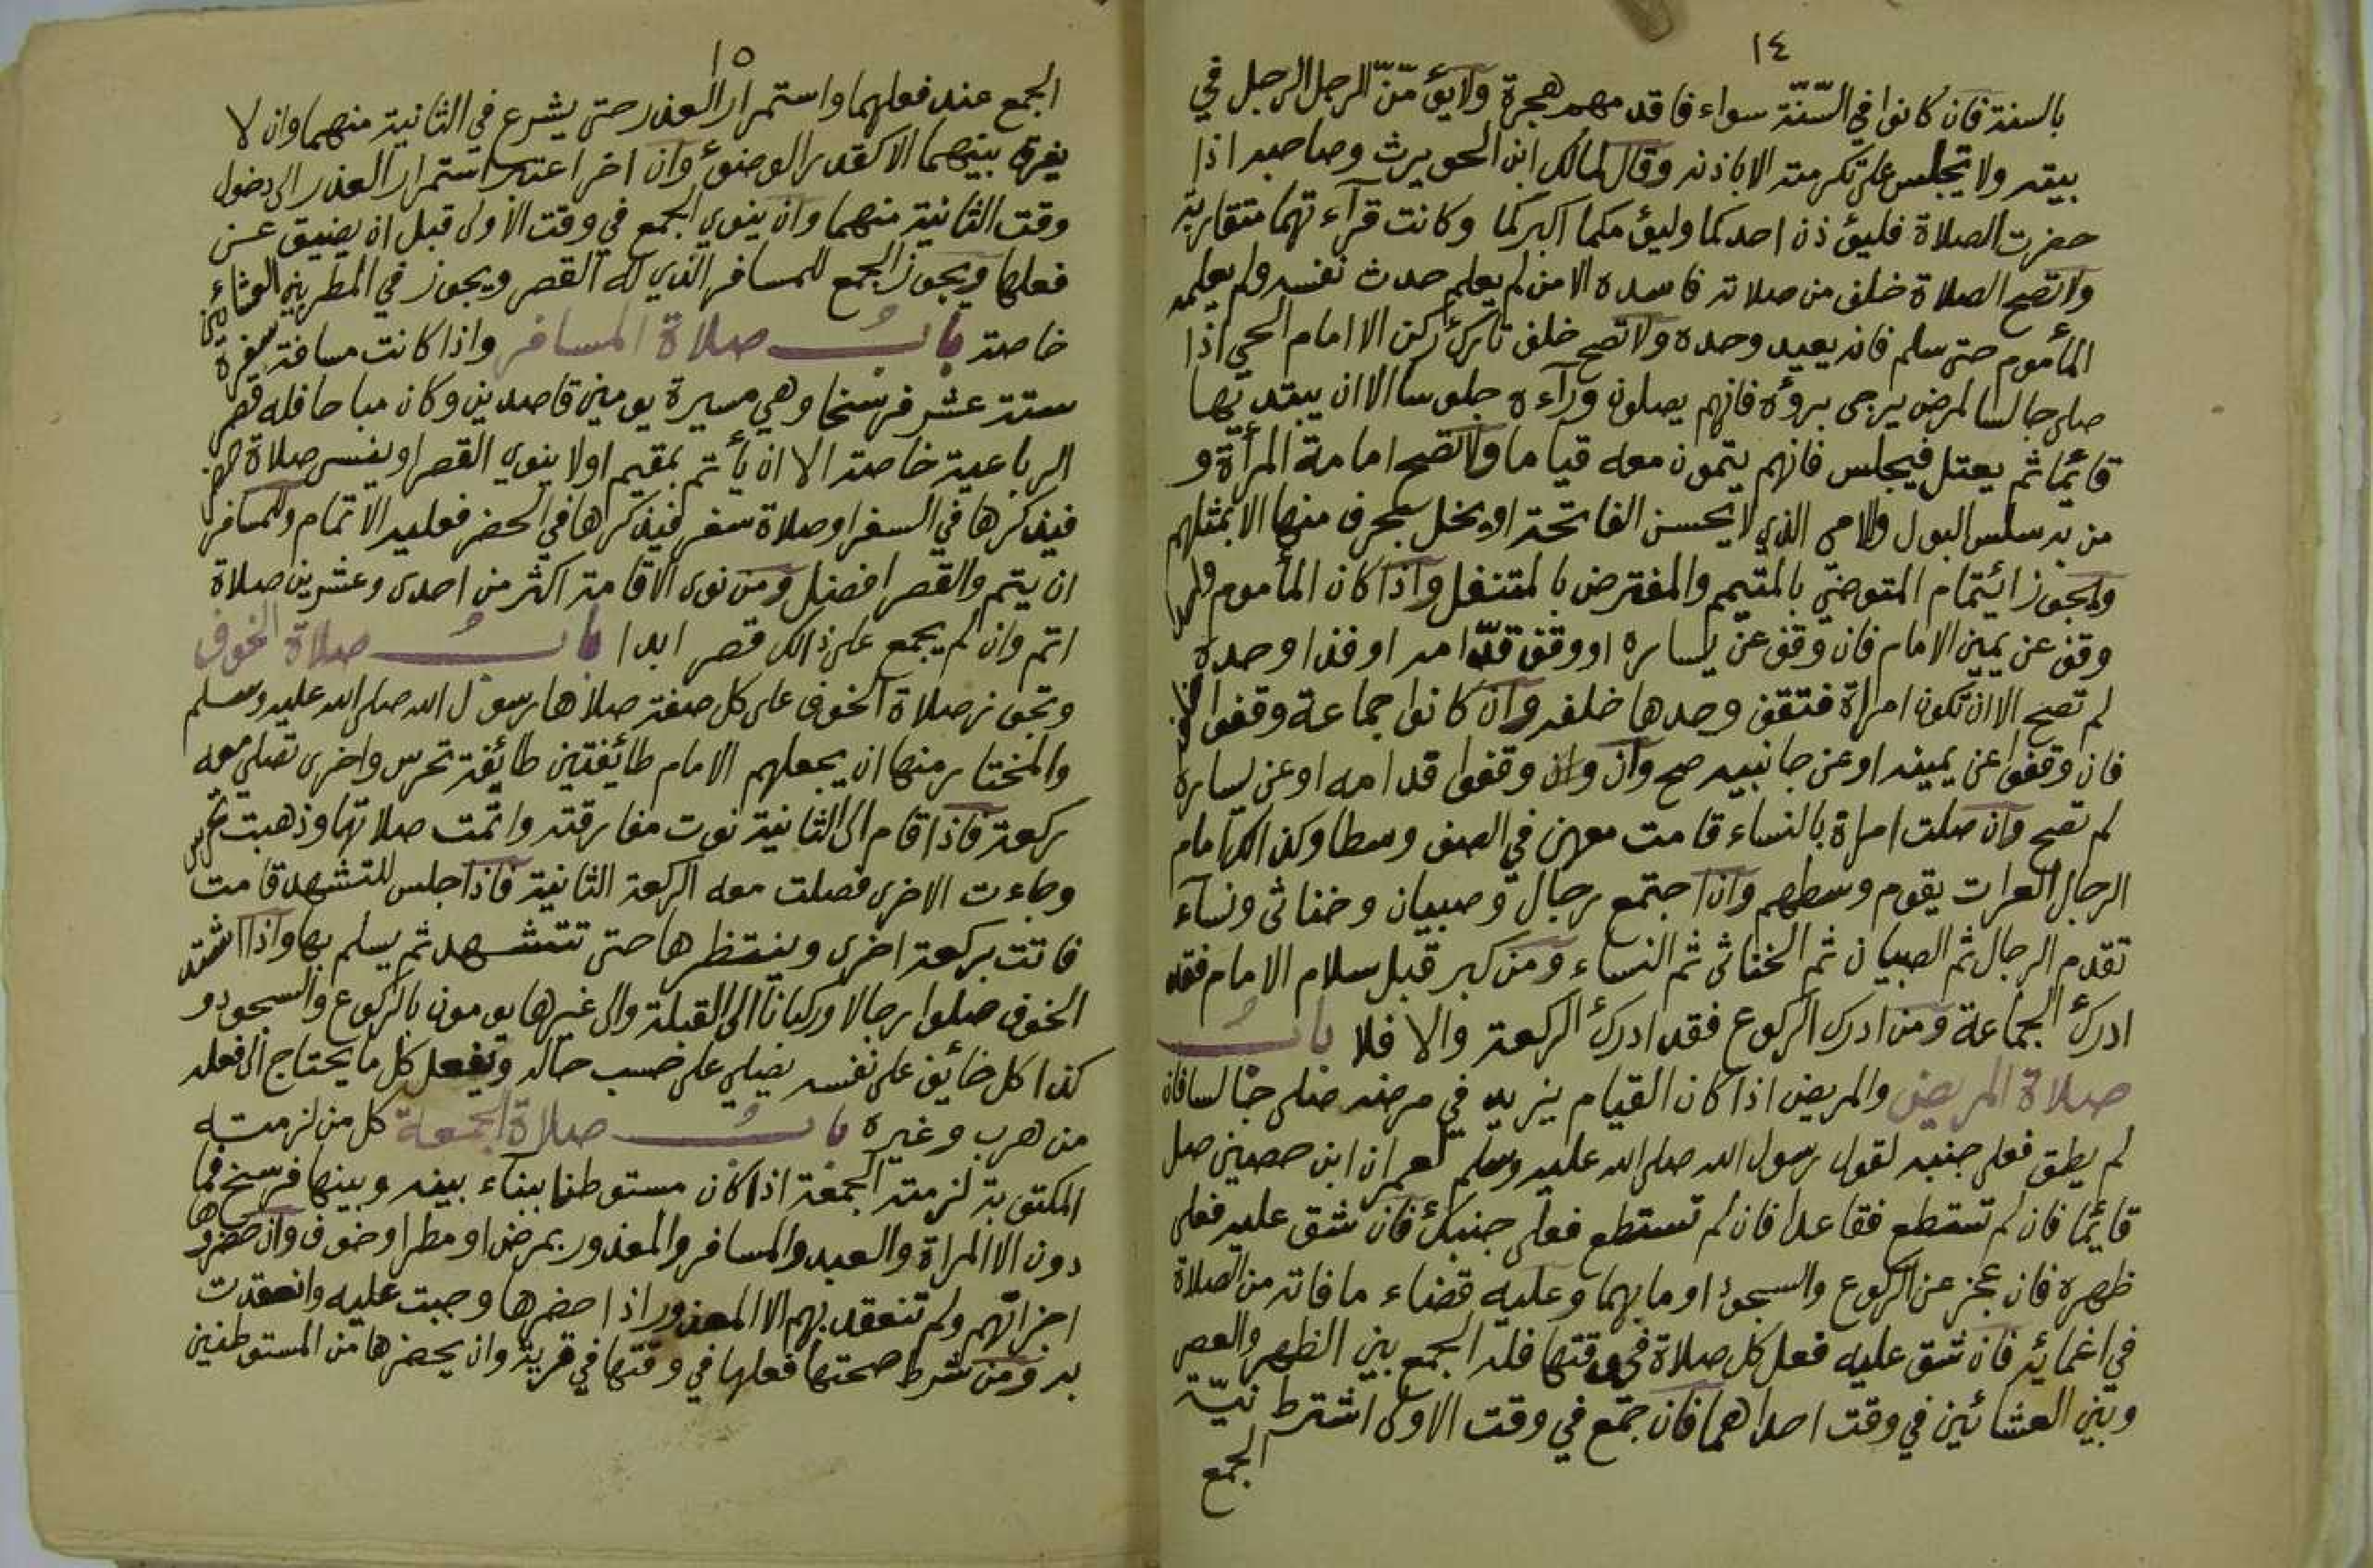 ١٤
بالسنة فان كانوا في السّنّة سواء فاقدمهم هجرة ولايؤمّنّ الرجل الرجل في
بيته ولا تجلس على تكرمته الا باذنه وقال لمالك ابن الحويرث وصاحبه اذا
حضرت الصلاة فليؤذن احدكما وليؤمكما اكبركما وكانت قرآءتهما متقاربة
ولاتصح الصلاة خلف من صلاته فاسدة الا من لم يعلم حدث نفسه ولم يعلمه
المأموم حتى سلم فانه يعيد وحده ولاتصح خلف تارك ركن الا امام الحي اذا
صلى جالسا لمرض يرجى بروؤه فانهم يصلون ورآءه جلوسا الا ان يبتديها
قائما ثم يعتل فيجلس فانهم يتمون معه قياما ولاتصح امامة المرأة و
من به سلس البول والامي الذي لا يحسن الفاتحة او يخل بحرف منها الا بمثلهم
ويجوز ائتمام المتوضي بالمتيمم والمفترض بالمتنفل واذا كان المأموم واحدا
وقف عن يمين الامام فان وقف عن يساره او وقف قدّامه او فذا وحده
لم تصح الا ان تكون امراة فتقف وحدها خلفه وان كانوا جماعة وقفوا خلفه
فان وقفوا عن يمينه او عن جانبيه صح وان وان وقفوا قدامه او عن يساره
لم تصح وان صلت امراة بالنساء قامت معهن في الصف وسطا وكذالك امام
الرجال العرات يقوم وسطهم وان اجتمع رجال وصبيان وخناثى ونسآء
تقدم الرجال ثم الصبيان ثم الخناثى ثم النساء ومن كبر قبل سلام الامام فقد
ادرك الجماعة ومن ادرك الركوع فقد ادرك الركعة والا فلا باب
صلاة المريض والمريض اذا كان القيام يزيد في مرضه صلى جالسا فان
لم يطق فعلى جنبه لقول رسول الله صلى الله عليه وسلم لعمران ابن حصين صل
قائما فان لم تستطع فقاعدا فان لم تستطع فعلى جنبك فان شق عليه فعلى
ظهره فان عجز عن الركوع والسجود اوما بهما وعليه قضاء ما فاته من الصلاة
في اغمائه فان شق عليه فعل كل صلاة في وقتها فله الجمع بين الظهر والعصر
وبين العشائين في وقت احداهما فان جمّع في وقت الاولى اشترط نيّة
الجمع
١٥
الجمع عند فعلهما واستمرار العذر حتى يشرع في الثانية منهما وان لا
يفرق بينهما الا كقدر الوضوء وان اخر اعتبر استمرار العذر الى دخول
وقت الثانية منهما وان ينوي الجمع في وقت الاولى قبل ان يضيق عن
فعلها ويجوز الجمع للمسافر الذي له القصر ويجوز في المطر بين العشائين
خاصة باب صلاة المسافر واذا كانت مسافة سفره
ستة عشر فرسخا وهي مسيرة يومين قاصدين وكان مباحا فله قصر
الرباعية خاصة الا ان يأتم بمقيم او لا ينوي القصر او ينسى صلاة حضر
فيذكرها في السفر او صلاة سفر فيذكرها في الحضر فعليه الاتمام وللمسافر
ان يتم والقصر افضل ومن نوى الاقامة اكثر من احدى وعشرين صلاة
اتم وان لم يجمع على ذالك قصر ابدا باب صلاة الخوف
وتجوز صلاة الخوف على كل صفة صلاها رسول الله صلى الله عليه وسلم
والمختار منها ان يجعلهم الامام طائفتين طائفة تحرس واخرى تصلي معه
ركعة فاذا قام الى الثانية نوت مفارقته واتمت صلاتها وذهبت تحرس
وجاءت الاخرى فصلت معه الركعة الثانية فاذا جلس للتشهد قامت
فاتت بركعة اخرى وينتظرها حتى تتشهد ثم يسلم بها واذا اشتد
الخوف صلوا رجالا وركبانا الى القبلة والى غيرها يومون بالركوع والسجود و
كذا كل خائف على نفسه يصلي على حسب حاله ويفعل كل ما يحتاج الى فعله
من هرب وغيره باب صلاة الجمعة كل من لزمته
المكتوبة لزمته الجمعة اذا كان مستوطنا ببناء بينه وبينها فرسخ فما
دون الا المراة والعبد والمسافر والمعذور بمرض او مطر او خوف وان حضروها
اجزاتهم ولم تنعقد بهم الا المعذور اذا حضرها وجبت عليه وانعقدت
به ومن شرط صحتها فعلها في وقتها في قرية وان يحضرها من المستوطنين